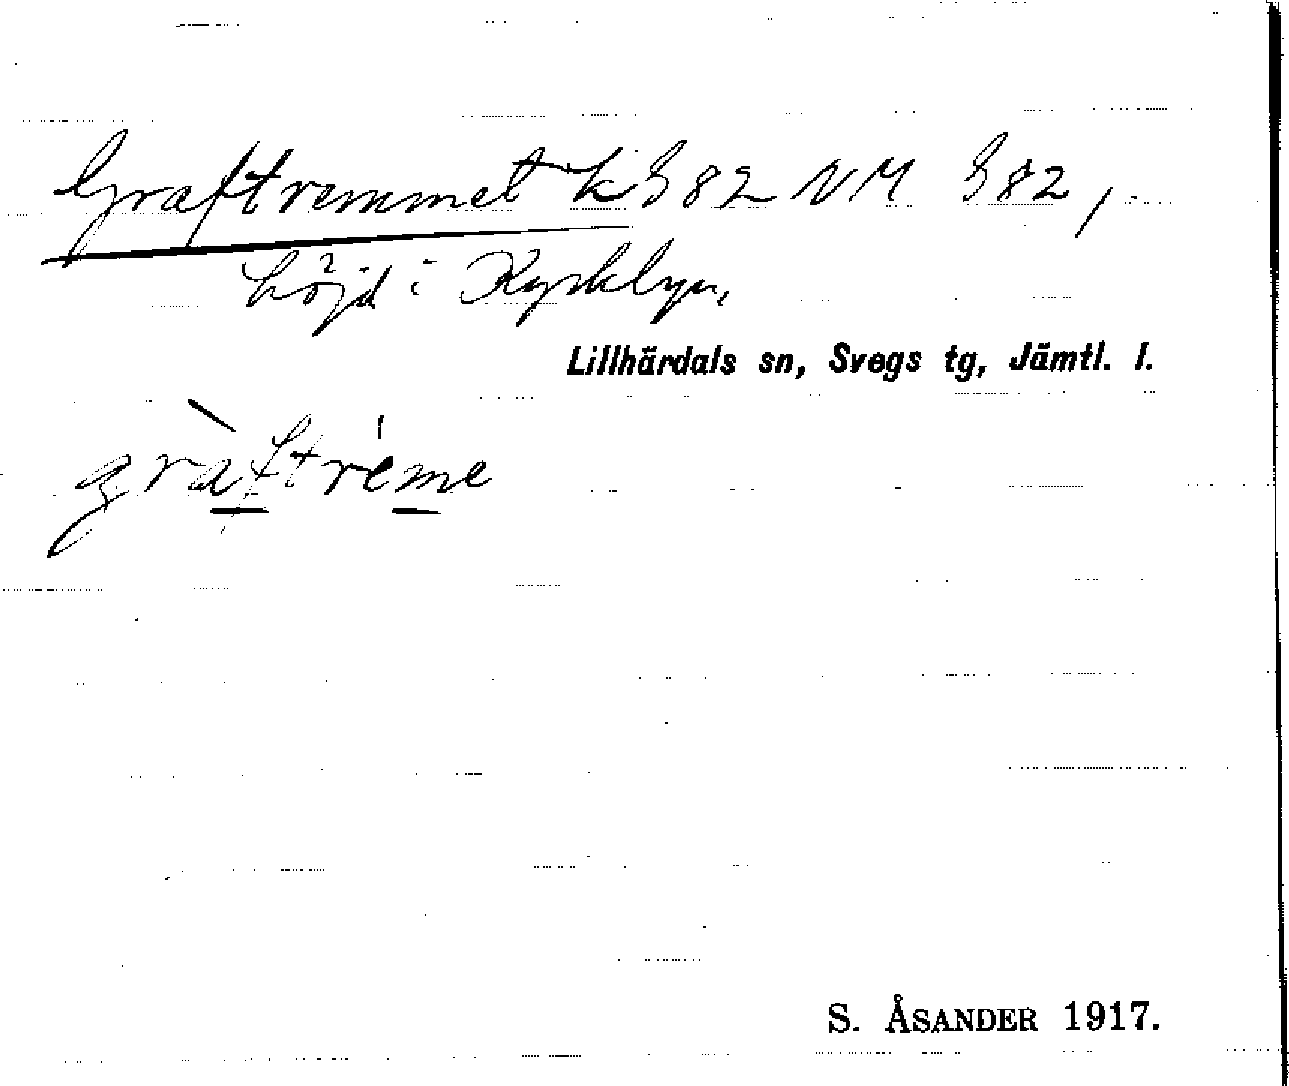 Graftremmet k G 82 NM G 82,
höjd i Kyrkbyn,
Lillhärdals sn, Svegs tg, Jämtl. l.
gràftréme
S. ÅSANDER 1917.